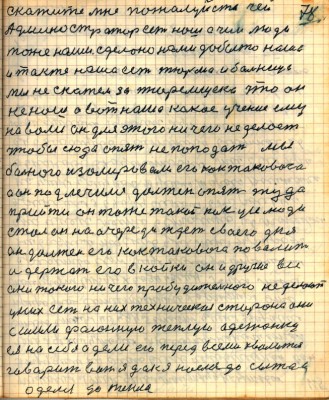 78.
скажите мне пожалуйста чей
Администратор сет наш а чем люди
тоже наши сделано нами добыто нами
и также наша сет тюрма и балнецы
мы не скажем за тюремщика это он
не наш а вот наша какое учение ему
на воли он для этого ни чего не делоет
чтобы сюда опят не поподат мы
балного изолировали его как таковога
а он под лечился должен опят туда
прийти он тоже такой как и люди
стал он на очередь ждет своего дня
он должен его как таковога повалит
и держат его в койки он и другие все
они такого ни чего пробуждонного не делают
у них сет на них техническая сторона они
с шили фасонную теплую адетонку
ея на себя одели его перед всеми хвалится
гаварит вот я дался поела до сыта и
оделся до тепла